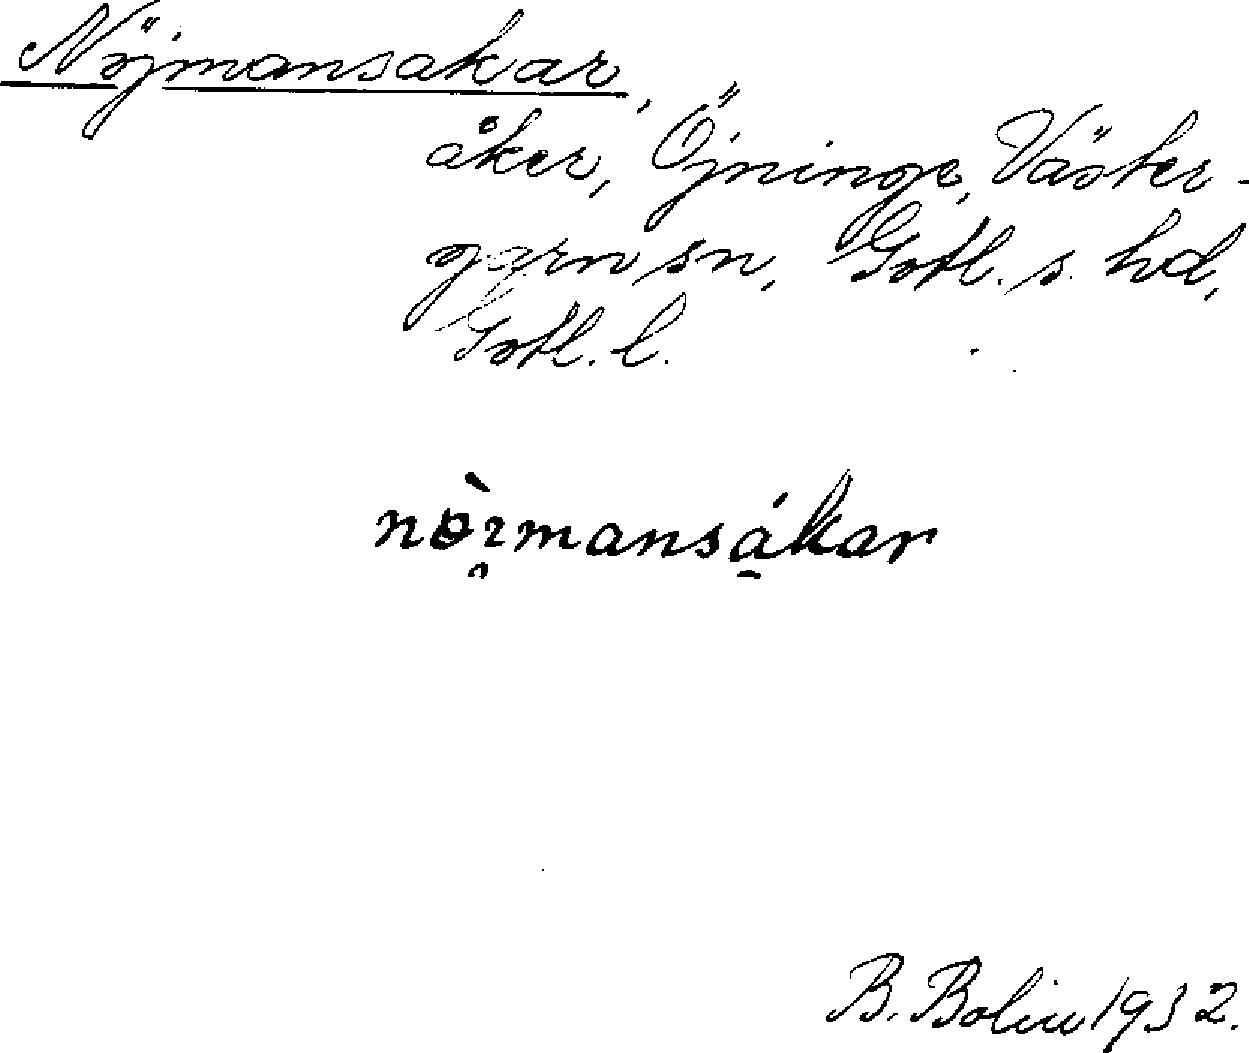 Nöjmansakar,
åker, Öjninge, Väster-
garn sn, Gotl. s. hd,
Gotl. l.
nòɪmansákar
B. Bolin 1932.